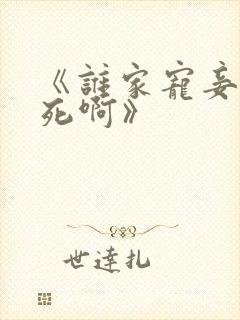 《誰家寵妾
死啊》
世達扎